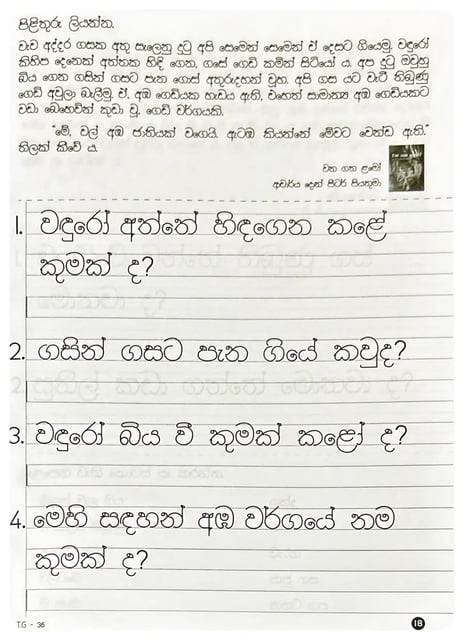 පිළිතුරු ලියන්න.
වැව අද්දර ගසක අතු සැලෙනු දුටු අපි සෙමෙන් සෙමෙන් ඒ දෙසට ගියෙමු. වඳුරෝ
කිහිප දෙනෙක් අත්තක හිඳි ගෙන, ගසේ ගෙඩි කමින් සිටියෝ ය. අප දුටු ඔවුහු
බිය ගෙන ගසින් ගසට පැන ගොස් අතුරුදහන් වූහ. අපි ගස යට වැටී තිබුණු
ගෙඩි අවුලා බැලීමු. ඒ, අඹ ගෙඩියක හැඩය ඇති, එහෙත් සාමාන්‍ය අඹ ගෙඩියකට
වඩා බෙහෙවින් කුඩා වූ, ගෙඩි වර්ගයකි.
"මේ, වල් අඹ ජාතියක් වගෙයි. ඇටඹ කියන්නේ මේවට වෙන්ඩ ඇති."
තිලක් කීවේ ය.
වන ගත ළමෝ
ආචාර්ය දොන් පීටර් පියතුමා
1. වඳුරෝ අත්තේ හිඳගෙන කළේ
කුමක් ද?
2. ගසින් ගසට පැන ගියේ කවුද?
3. වඳුරෝ බිය වී කුමක් කළෝ ද?
4. මෙහි සඳහන් අඹ වර්ගයේ නම
කුමක් ද?
T.G - 36
18